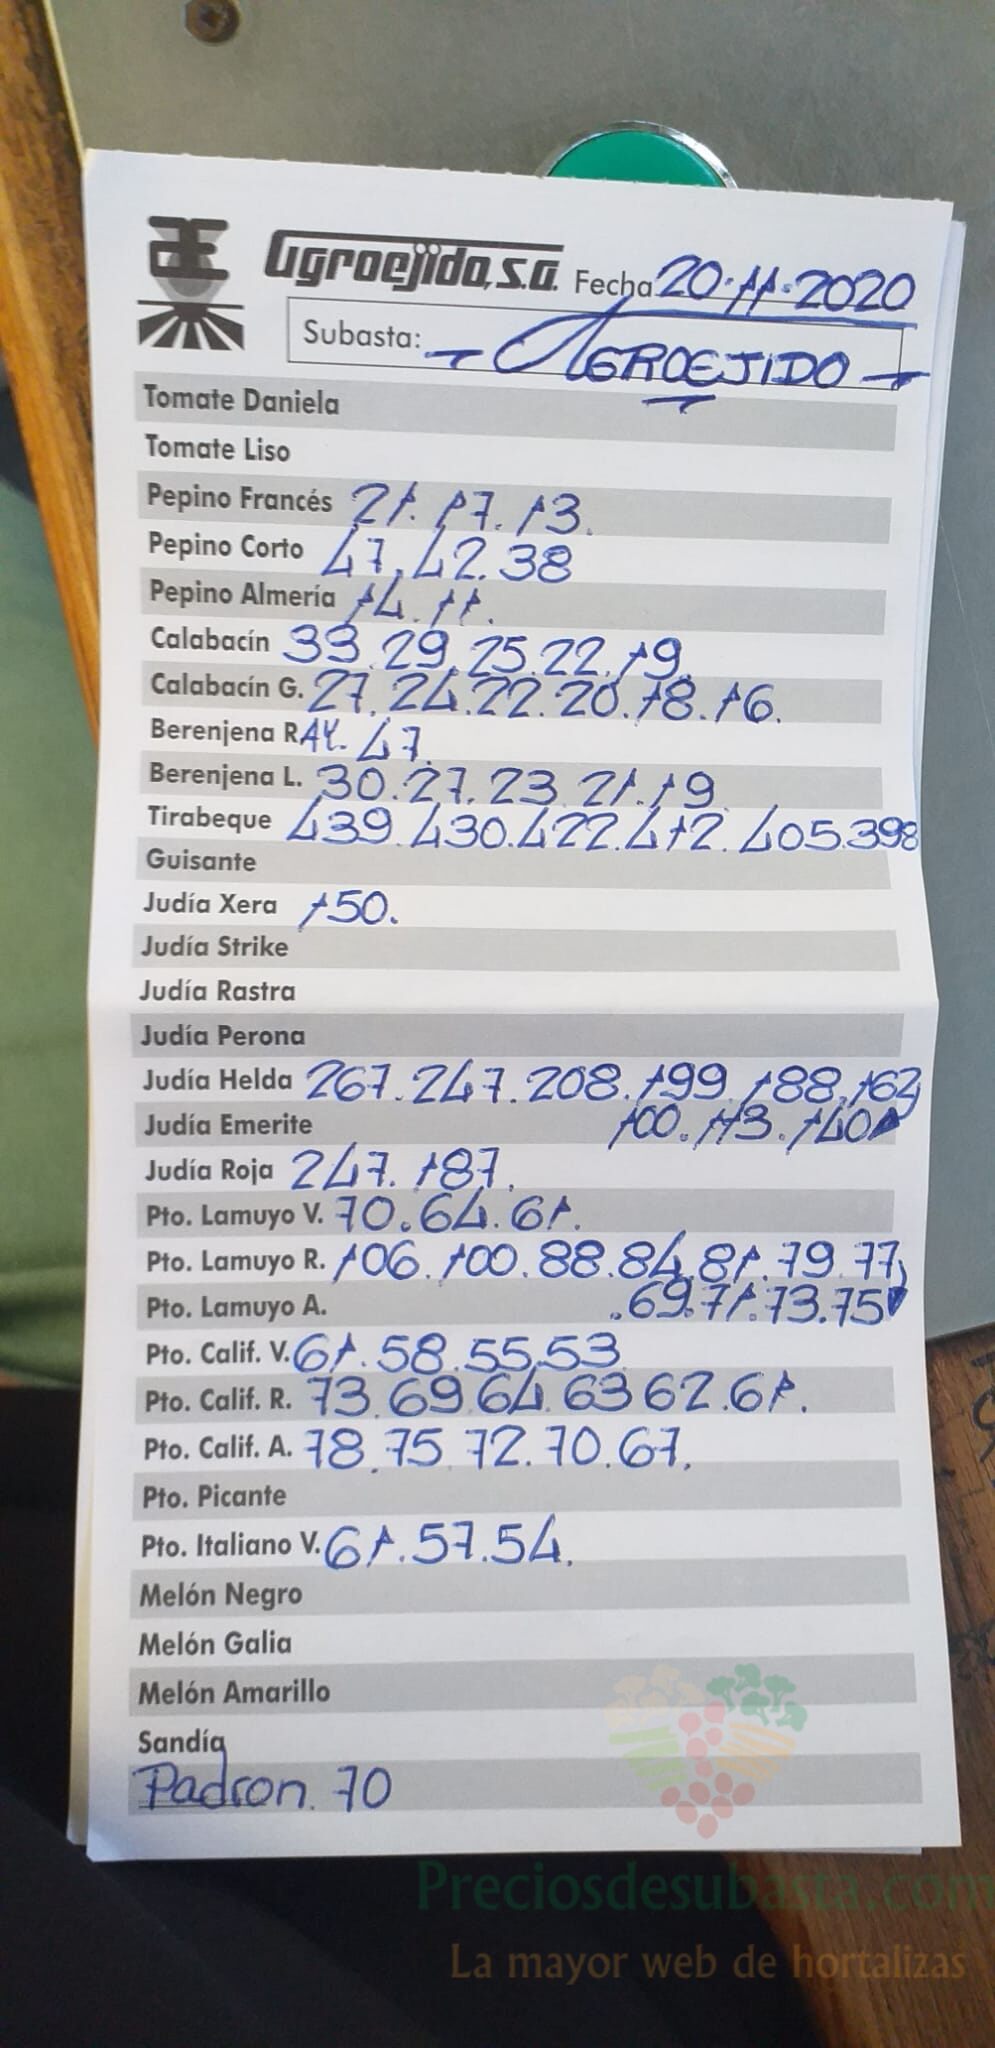 Agroejido, S.A. Fecha 20-11-2020
Subasta: - AGROEJIDO -
Tomate Daniela
Tomate Liso
Pepino Francés 21. 17. 13.
Pepino Corto 47. 42. 38
Pepino Almería 14. 11.
Calabacín 33. 29. 25. 22. 19
Calabacín G. 27. 24. 22. 20. 18. 16.
Berenjena RAY. 47.
Berenjena L. 30. 27. 23. 21. 19
Tirabeque 439. 430. 422. 412. 405. 398
Guisante
Judía Xera 150.
Judía Strike
Judía Rastra
Judía Perona
Judía Helda 267. 247. 208. 199. 188. 162
Judía Emerite 100. 113. 140
Judía Roja 247. 187.
Pto. Lamuyo V. 70. 64. 61.
Pto. Lamuyo R. 106. 100. 88. 84. 81. 79. 77
Pto. Lamuyo A. .69. 71. 73. 75
Pto. Calif. V. 61. 58. 55. 53
Pto. Calif. R. 73. 69. 64. 63 62. 61.
Pto. Calif. A. 78. 75. 72. 70. 67.
Pto. Picante
Pto. Italiano V. 61. 57. 54.
Melón Negro
Melón Galia
Melón Amarillo
Sandía
Padron. 70
Preciosdesubasta.com
La mayor web de hortalizas